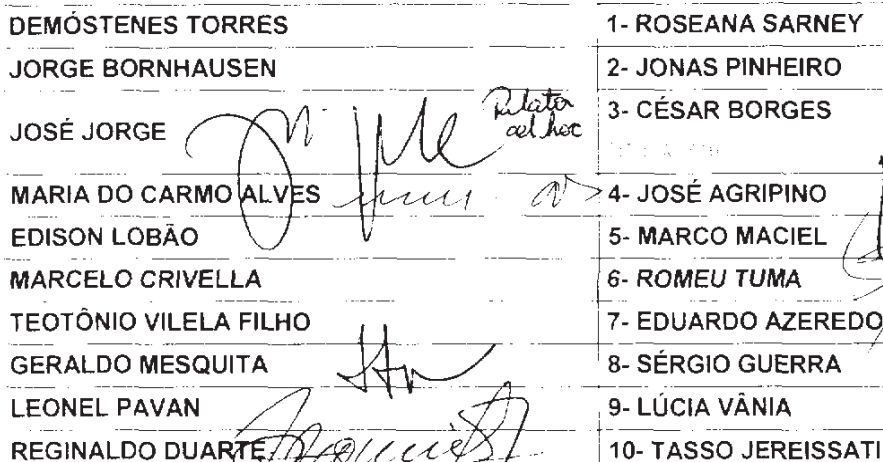 DEMÓSTENES TORRES 1- ROSEANA SARNEY
JORGE BORNHAUSEN 2- JONAS PINHEIRO
JOSÉ JORGE Relator ad hoc 3- CÉSAR BORGES
MARIA DO CARMO ALVES 4- JOSÉ AGRIPINO
EDISON LOBÃO 5- MARCO MACIEL
MARCELO CRIVELLA 6- ROMEU TUMA
TEOTÔNIO VILELA FILHO 7- EDUARDO AZEREDO
GERALDO MESQUITA 8- SÉRGIO GUERRA
LEONEL PAVAN 9- LÚCIA VÂNIA
REGINALDO DUARTE 10- TASSO JEREISSATI